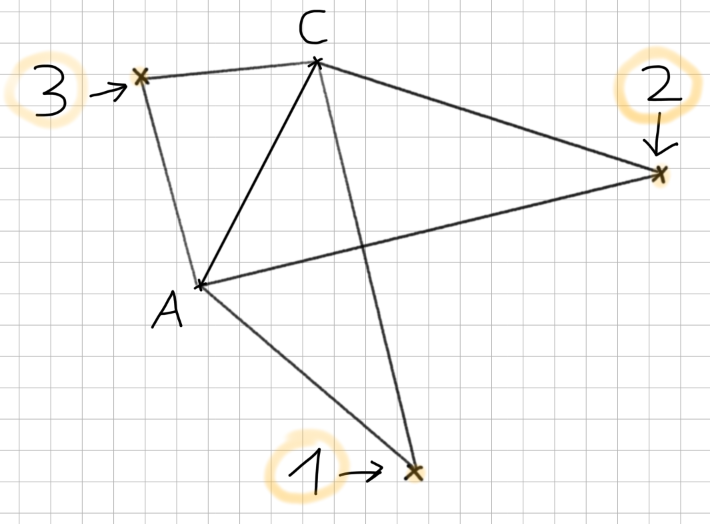 C
3 →
2
↓
A
1 →